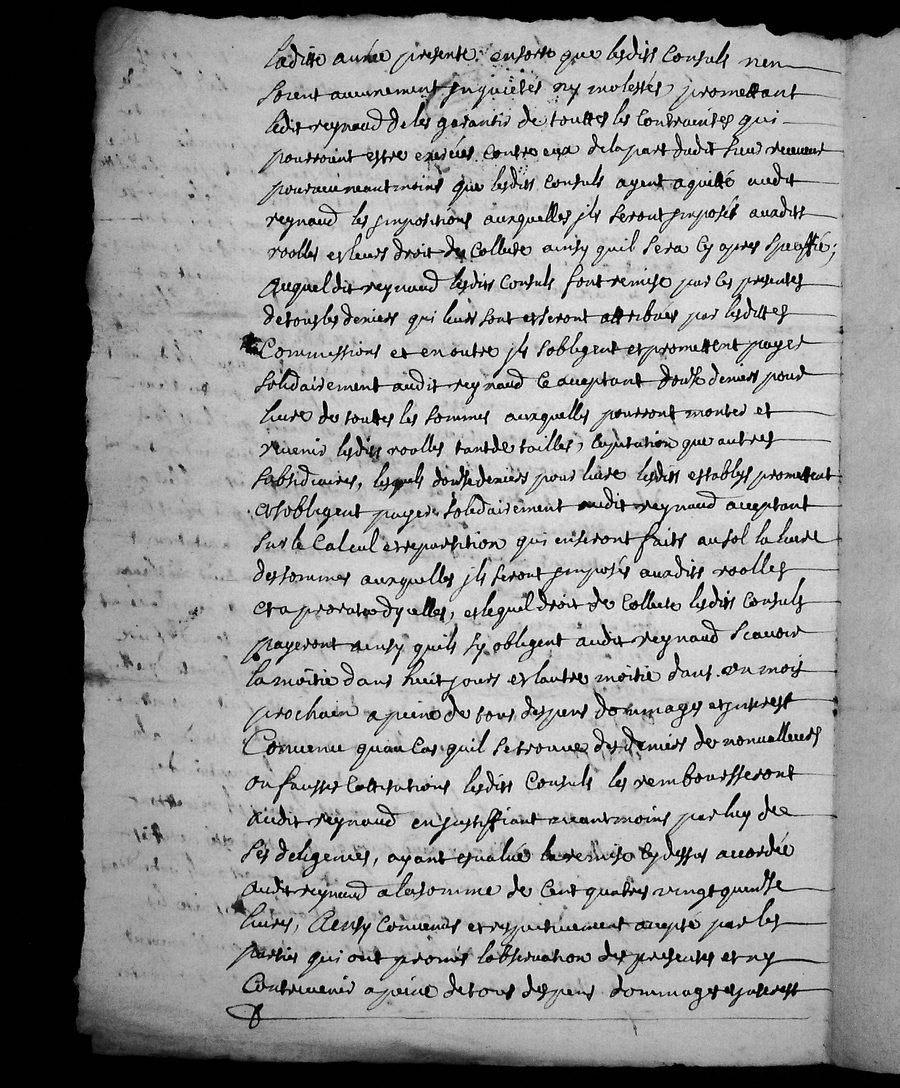 ladite année presente ensorte que lesdits Consuls nen
soient aucunement jnquietés ny molestés, promettant
ledit reynaud de les garantir de touttes les Contraintes qui
pourroient estre exercées Contre eux de la part dudit sieur receveur
pourveu neantmoins que lesdits Consuls ayent aquitté audit
reynaud les jmpositions auxquelles jls seront jmposés auxdits
roolles et leurs droit de Collecte ainsy quil sera Cy apres speciffié;
Auquel dit reynaud lesdits Consuls font remise par Ces presentes
de tous les deniers qui leurs sont et seront attribues par lesdittes
Commissions et en outre jls sobligent et promettent payer
solidairement audit reynaud Ce acceptant douse deniers pour
livre de toutes les sommes auxquelles pourront monter et
revenir lesdits roolles tant de tailles, Capitation que autres
subsidiaires, lesquels douse deniers pour livre lesdits establys promettent
et sobligent payer solidairement audit reynaud acceptant
sur le Calcul et repartition qui en seront faits au sol la livre
des sommes auxquelles jls seront jmposés auxdits roolles
et a prorata dycelles, et lequel droit de Collecte lesdits Consuls
payeront ainsy quils sy obligent audit reynaud scavoir
la moitie dans huit jours et lautre moitie dans un mois
prochain a peine de tous despens dommages et jnterest
Convenu quau Cas quil se trouve des deniers de nonvalleurs
ou fausses Cottisations lesdits Consuls les rembourseront
audit reynaud en justiffiant neantmoins par luy de
ses deligences, ayant evalué la remise Cy dessus accordée
audit reynaud a la somme de Cent quatre vingt quinse
livres, Ainsy Convenus et respectivement accepté par les
parties qui ont promis lobservation des presentes et ny
Contrevenir a peine de tous despens dommages et jnterest